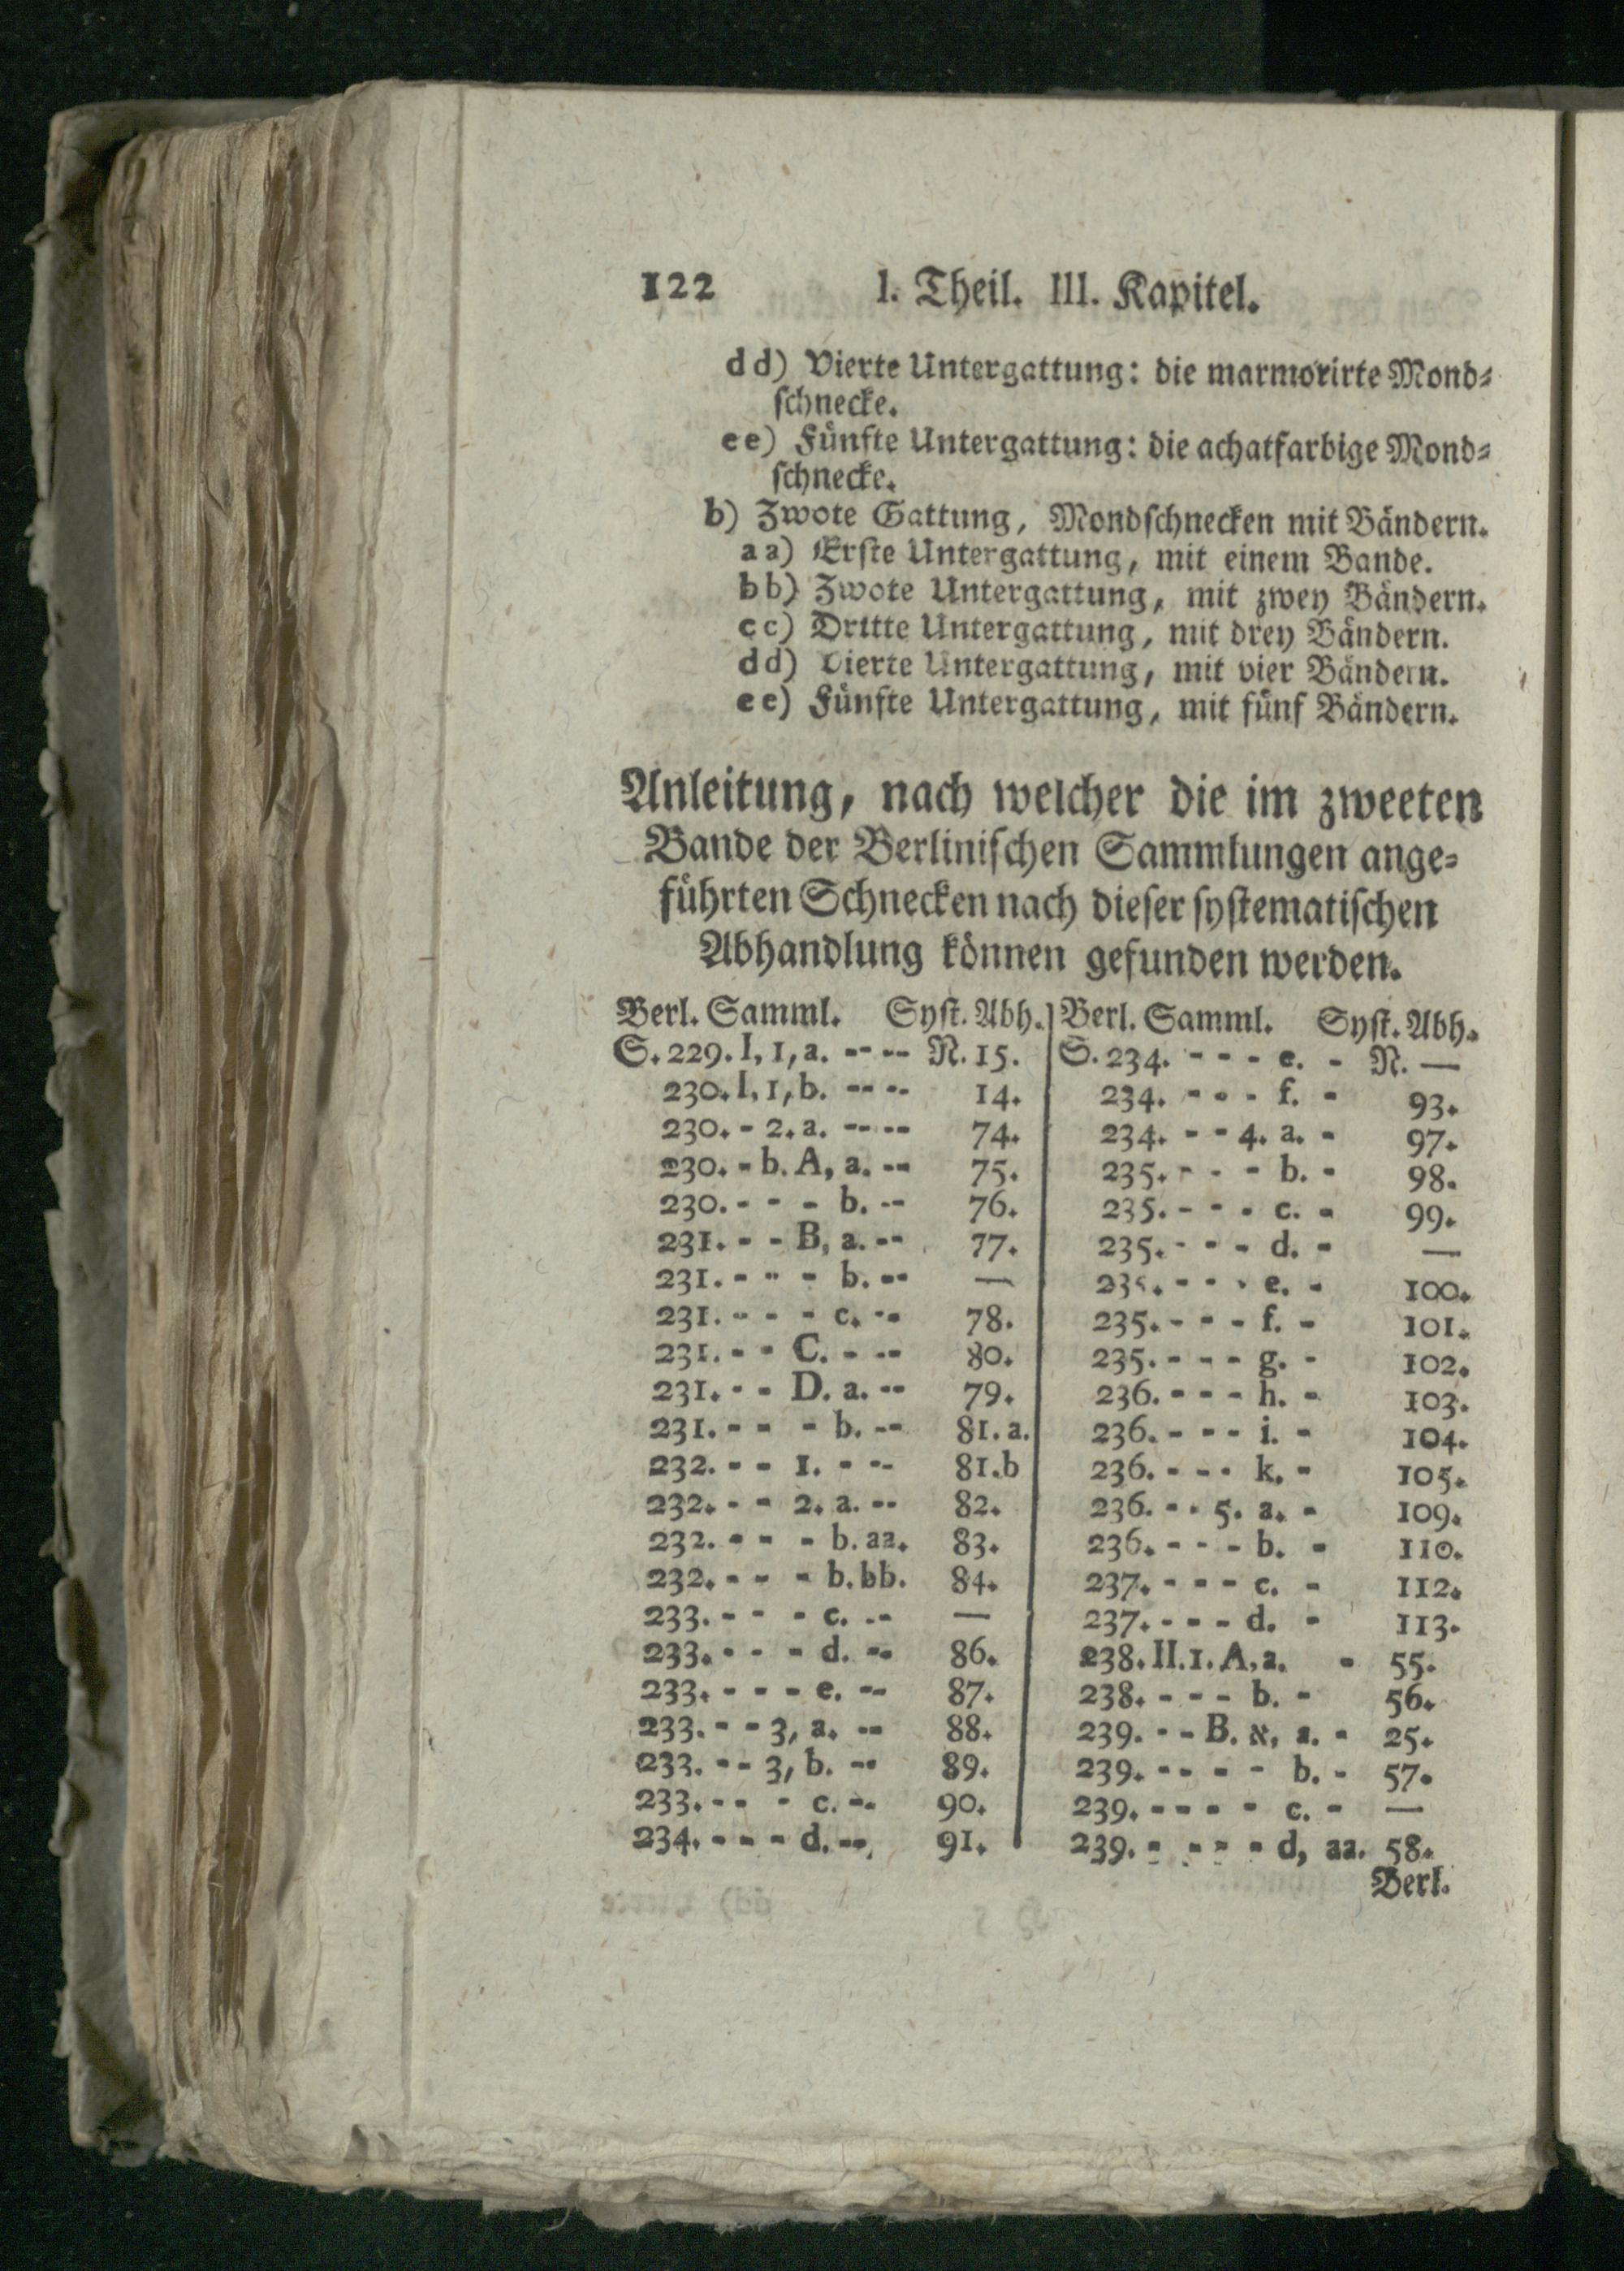 122 I. Theil. III. Kapitel.
dd) Vierte Untergattung: die marmorirte Mond-
schnecke.
ee) Fünfte Untergattung: die achatfarbige Mond-
schnecke.
b) Zwote Gattung, Mondschnecken mit Bändern.
aa) Erste Untergattung, mit einem Bande.
bb) Zwote Untergattung, mit zwey Bändern.
cc) Dritte Untergattung, mit drey Bändern.
dd) Vierte Untergattung, mit vier Bändern.
ee) Fünfte Untergattung, mit fünf Bändern.
Anleitung, nach welcher die im zweeten
Bande der Berlinischen Sammlungen ange-
führten Schnecken nach dieser systematischen
Abhandlung können gefunden werden.
Berl. Samml. Syst. Abh.
S. 229. I, 1, a. -- -- N. 15.
230. I, 1, b. -- -- 14.
230. - 2. a. -- -- 74.
230. - b. A, a. -- 75.
230. - - - b. -- 76.
231. - - B, a. -- 77.
231. - - - b. -- —
231. - - - c. -- 78.
231. - - C. - -- 80.
231. - - D. a. -- 79.
231. - - - b. -- 81. a.
232. - - 1. - -- 81. b
232. - - 2. a. -- 82.
232. - - - b. aa. 83.
232. - - - b. bb. 84.
233. - - - c. -- —
233. - - - d. -- 86.
233. - - - e. -- 87.
233. - - 3, a. -- 88.
233. - - 3, b. -- 89.
233. - - - c. -- 90.
234. - - - d. -- 91.
Berl. Samml. Syst. Abh.
S. 234. - - - e. - N. —
234. - - - f. - 93.
234. - - 4. a. - 97.
235. - - - b. - 98.
235. - - - c. - 99.
235. - - - d. - —
235. - - - e. - 100.
235. - - - f. - 101.
235. - - - g. - 102.
236. - - - h. - 103.
236. - - - i. - 104.
236. - - - k. - 105.
236. - - 5. a. - 109.
236. - - - b. - 110.
237. - - - c. - 112.
237. - - - d. - 113.
238. II. 1. A, a. - 55.
238. - - - b. - 56.
239. - - B. א, a. - 25.
239. - - - - b. - 57.
239. - - - - c. - —
239. - - - - d, aa. 58.
Berl.